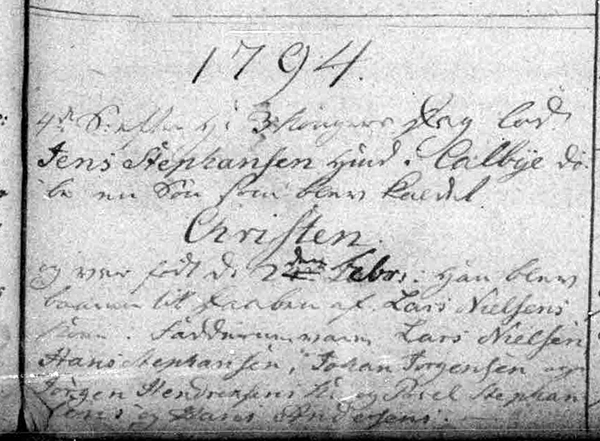 1794.
4de S: efter H: 3 Konger Dag lod
Jens Stephansen Calbÿe dö-
be en Sön som blev kaldet
Christen.
og var född d. 2den Febr: Han blev
baaren till daaben af Lars Nielsens
Fadderne vare Lars Nielsen
Hans Stephansen, Johan Jörgensen
Jörgen Hendrichsens og Povel Stephan
Jens og Hans Andersens.